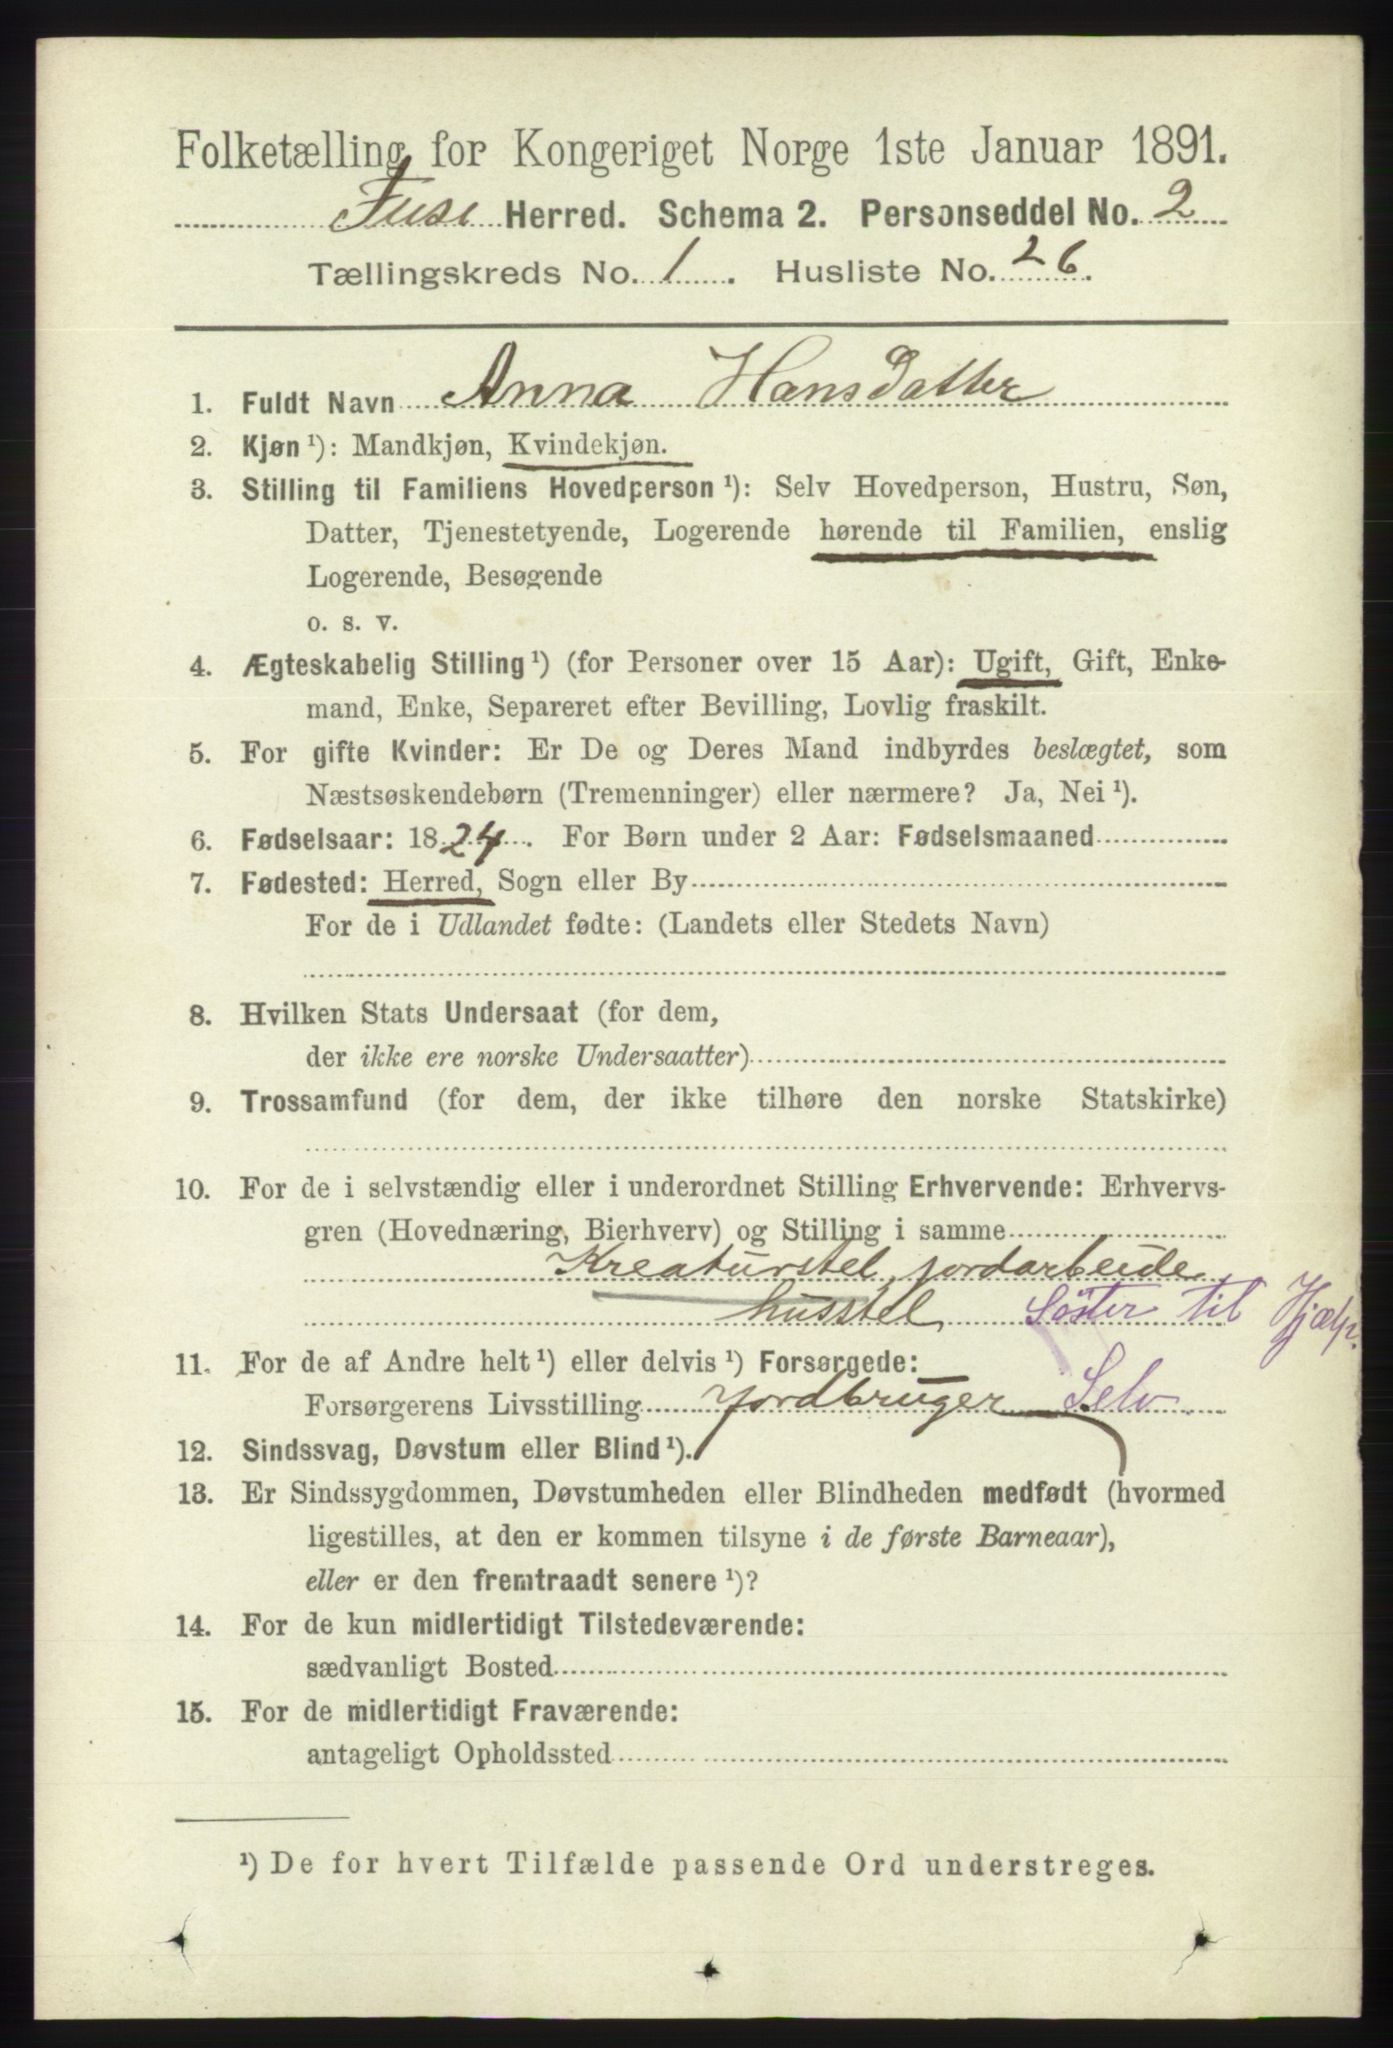 Folketælling for Kongeriget Norge 1ste Januar 1891.
Fuse Herred. Schema 2. Personseddel No. 2
Tællingskreds No. 1. Husliste No. 26.
1. Fuldt Navn Anna Hansdatter
2. Kjøn ¹): Mandkjøn, Kvindekjøn.
3. Stilling til Familiens Hovedperson ¹): Selv Hovedperson, Hustru, Søn,
Datter, Tjenestetyende, Logerende hørende til Familien, enslig
Logerende, Besøgende
o. s. v.
4. Ægteskabelig Stilling ¹) (for Personer over 15 Aar): Ugift, Gift, Enke-
mand, Enke, Separeret efter Bevilling, Lovlig fraskilt.
5. For gifte Kvinder: Er De og Deres Mand indbyrdes beslægtet, som
Næstsøskendebørn (Tremenninger) eller nærmere? Ja, Nei ¹).
6. Fødselsaar: 1824. For Børn under 2 Aar: Fødselsmaaned
7. Fødested: Herred, Sogn eller By
For de i Udlandet fødte: (Landets eller Stedets Navn)
8. Hvilken Stats Undersaat (for dem,
der ikke ere norske Undersaatter)
9. Trossamfund (for dem, der ikke tilhøre den norske Statskirke)
10. For de i selvstændig eller i underordnet Stilling Erhvervende: Erhvervs-
gren (Hovednæring, Bierhverv) og Stilling i samme
Kreaturstel, jordarbeide
husstel Søster til Hjælp.
11. For de af Andre helt ¹) eller delvis ¹) Forsørgede:
Forsørgerens Livsstilling Jordbruger Selv
12. Sindssvag, Døvstum eller Blind ¹).
13. Er Sindssygdommen, Døvstumheden eller Blindheden medfødt (hvormed
ligestilles, at den er kommen tilsyne i de første Barneaar),
eller er den fremtraadt senere ¹)?
14. For de kun midlertidigt Tilstedeværende:
sædvanligt Bosted
15. For de midlertidigt Fraværende:
antageligt Opholdssted
¹) De for hvert Tilfælde passende Ord understreges.